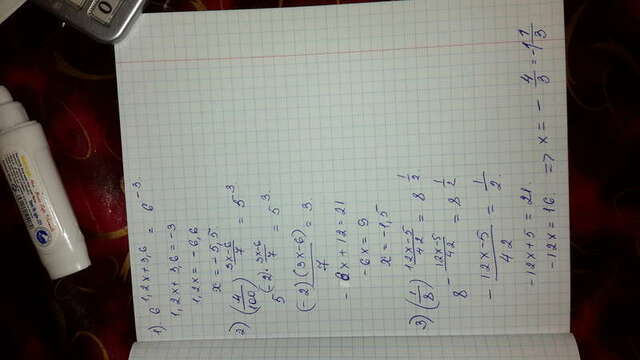 1) 6^{1,2x+3,6} = 6^{-3}.
1,2x+3,6=-3
1,2x = -6,6
x = -5,5.
2) (4/100)^{(3x-6)/7} = 5^3
5^{(-2)·(3x-6)/7} = 5^3.
(-2)(3x-6)/7 = 3
-6x+12=21
-6x=9
x=-1,5
3) (1/8)^{(12x-5)/42} = 8^{1/2}
8^{-(12x-5)/42} = 8^{1/2}
-(12x-5)/42 = 1/2.
-12x+5=21.
-12x=16. => x = -4/3 = -1 1/3